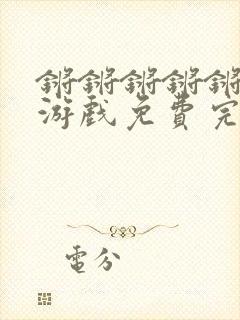 锵锵锵锵锵
游戏免費完
電分